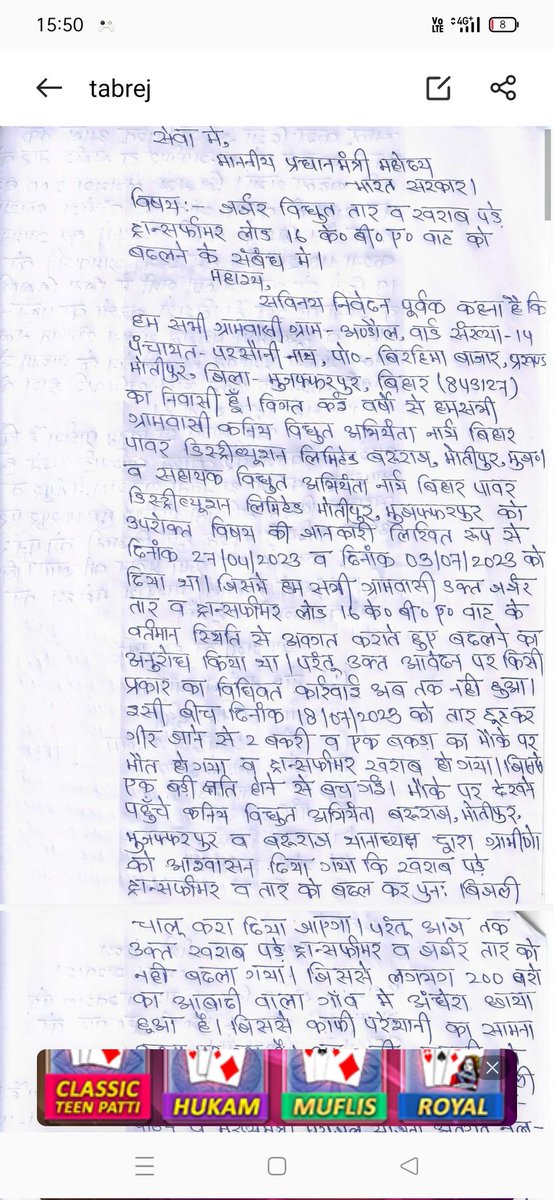 15:50
Vo LTE 4G+ 8
tabrej
सेवा में,
माननीय प्रधानमंत्री महोदय
भारत सरकार।
विषय:- जर्जर विद्युत तार व खराब पड़े
ट्रान्सर्फामर लोड 16 के० बी० ए० वाट को
बदलने के संबंध में।
महाशय,
सविनय निवेदन पूर्वक कहना है कि
हम सभी ग्रामवासी ग्राम- अण्डौल, वार्ड संख्या-14
पंचायत- परसौनी नाथ, पो०- बिरहिमा बाजार, प्रखण्ड
मोतीपुर, जिला- मुजफ्फरपुर, बिहार (843127)
का निवासी हूँ। विगत कई वर्षो से हमसभी
ग्रामवासी कनिय विद्युत अभियंता नार्थ बिहार
पावर डिस्ट्रीब्यूशन लिमिटेड बरूराज, मोतीपुर, मुज०
व सहायक विद्युत अभियंता नार्थ बिहार पावर
डिस्ट्रीब्यूशन लिमिटेड मोतीपुर, मुजफ्फरपुर को
उपरोक्त विषय की जानकारी लिखित रूप से
दिनांक 27/04/2023 व दिनांक 03/07/2023 को
दिया था। जिसमे हम सभी ग्रामवासी उक्त जर्जर
तार व ट्रान्सर्फामर लोड 16 के० बी० ए० वाट के
वर्तमान स्थिति से अवगत कराते हुए बदलने का
अनुरोध किया था। परंतु उक्त आवेदन पर किसी
प्रकार का विधिवत कारवाई अब तक नही हुआ।
इसी बीच दिनांक 18/07/2023 को तार टूटकर
गीर जाने से 2 बकरी व एक बकडा का मौके पर
मौत हो गया व ट्रान्सर्फामर खराब हो गया। जिससे
एक बडी क्षति होने से बच गई। मौके पर देखने
पहुँचे कनिय विद्युत अभियंता बरूराज, मोतीपुर,
मुजफ्फरपुर व बरूराज थानाध्यक्ष द्वारा ग्रामीणो
को आश्वासन दिया गया कि खराब पडे
ट्रान्सर्फामर व तार को बदल कर पुनः बिजली
चालू करा दिया जाएगा। परंतु आज तक
उक्त खराब पडे ट्रान्सर्फामर व जर्जर तार को
नही बदला गया। जिससे लगभग 200 घरो
का आबादी वाला गाँव में अंधेरा छाया
हुआ है। जिससे काफी परेशानी का सामना
CLASSIC TEEN PATTI
HUKAM
MUFLIS
ROYAL